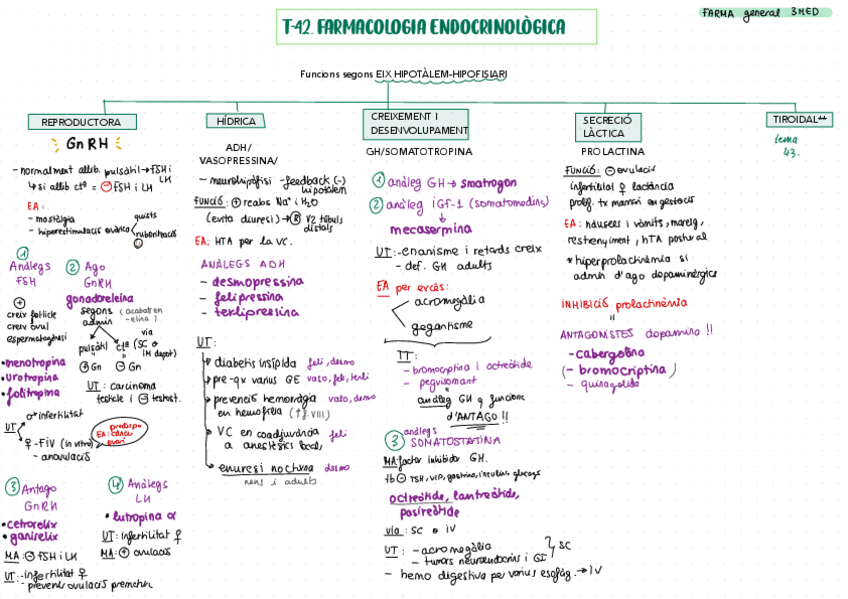 FARMA general 3MED
T-42. FARMACOLOGIA ENDOCRINOLÒGICA
Funcions segons EIX HIPOTÀLEM-HIPOFISIARI
REPRODUCTORA
GnRH
- normalment allib. pulsàtil → FSH i LH
↳ si allib ctᵉ = ⊖ FSH i LH
EA:
- mastàlgia
- hiperestimulació ovàrica
quists
①
Anàlegs
FSH
⊕
creix fol·licle
creix òvul
espermatogènesi
• menotropina
• urotropina
• folitropina
UT
♂ infertilitat
♀ - FIV (in vitro)
- anovulació
EA: càncer
ovari
② Ago
GnRH
gonadorelina
segons
admin
(acaben en
-elina)
via
pulsàtil
ctᵉ (SC o
IM depot)
⊕ Gn
⊖ Gn
UT: carcinoma
testicle i ⊖ testost.
③ Antago
GnRH
• cetrorelix
• ganirelix
MA: ⊖ FSH i LH
UT: - infertilitat ♀
- prevenir ovulació prematura
④ Anàlegs
LH
• lutropina α
UT: infertilitat ♀
MA: ⊕ ovulació
HÍDRICA
ADH/
VASOPRESSINA/
- neurohipòfisi - feedback (-)
hipotàlem
FUNCIÓ: ⊕ reabs Na⁺ i H₂O
(evita diuresi) → Ⓡ V2 túbuls
distals
EA: HTA per la VC.
ANÀLEGS ADH
- desmopressina
- felipressina
- terlipressina
UT:
diabetis insípida feli, desmo
pre-qx varius GE vaso, feli, terli
prevenció hemorràgia vaso, desmo
en hemofília (↑f.VIII)
VC en coadjuvància feli
a anestèsics local
enuresi nocturna desmo
nens i adults
CREIXEMENT I
DESENVOLUPAMENT
GH/SOMATOTROPINA
① anàleg GH → smatrogon
② anàleg IGF-1 (somatomedins)
↓
mecasermina
UT: - enanisme i retards creix
- def. GH adults
EA per excés:
acromegàlia
gegantisme
TT:
- bromocriptina i octreòtide
- pegvisomant
anàleg GH q funciona
d'ANTAGO !!
③ anàlegs
SOMATOSTATINA
MA: factor inhibidor GH.
tb ⊖ TSH, VIP, gastrina, insulina, glucag
octreòtide, lanreòtide,
pasireòtide
via: SC o IV
UT: - acromegàlia
- tumors neuroendocrins i GI
SC
- hemo digestiva per varius esofàg. → IV
SECRECIÓ
LÀCTICA
PROLACTINA
FUNCIÓ: ⊖ ovulació
infertilitat ♀ lactància
prolif. tx mamari en gestació
EA: nàusees i vòmits, mareig,
restrenyiment, hTA postural
* hiperprolactinèmia si
admin d'ago dopaminèrgics
INHIBICIÓ prolactinèmia
ANTAGONISTES dopamina !!
- cabergolina
(- bromocriptina)
- quinagolida
TIROIDAL**
tema
43.